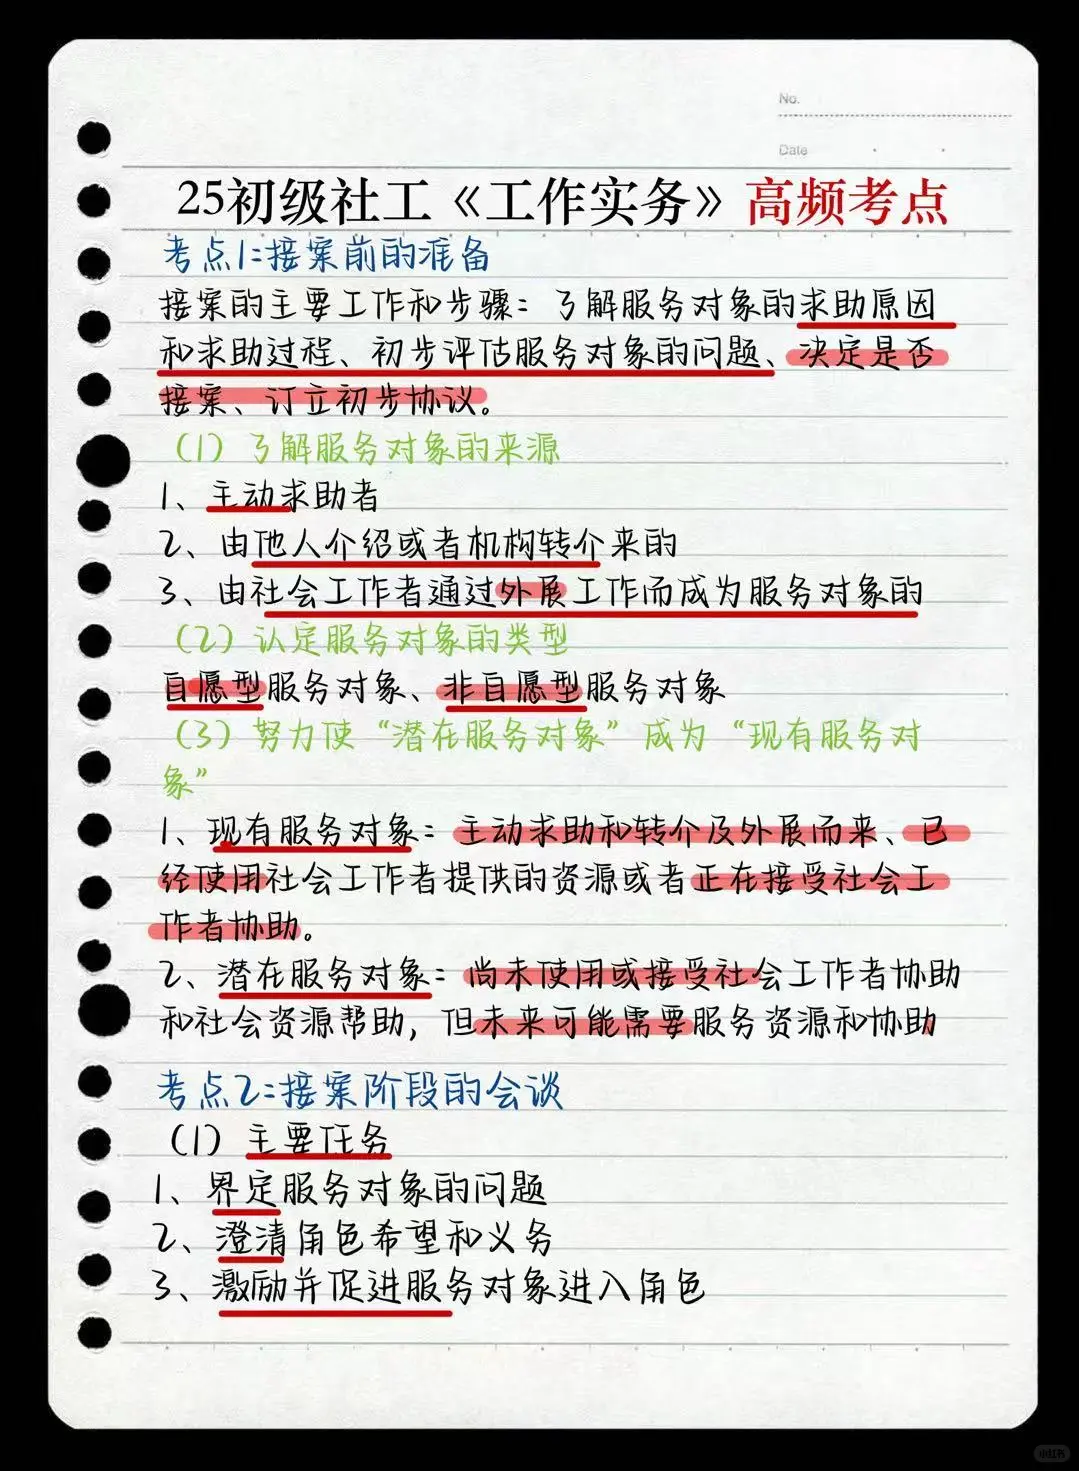 No.
Date
25初级社工《工作实务》高频考点
考点1:接案前的准备
接案的主要工作和步骤：了解服务对象的求助原因
和求助过程、初步评估服务对象的问题、决定是否
接案、订立初步协议。
（1）了解服务对象的来源
1、主动求助者
2、由他人介绍或者机构转介来的
3、由社会工作者通过外展工作而成为服务对象的
（2）认定服务对象的类型
自愿型服务对象、非自愿型服务对象
（3）努力使“潜在服务对象”成为“现有服务对
象”
1、现有服务对象：主动求助和转介及外展而来、已
经使用社会工作者提供的资源或者正在接受社会工
作者协助。
2、潜在服务对象：尚未使用或接受社会工作者协助
和社会资源帮助，但未来可能需要服务资源和协助
考点2:接案阶段的会谈
（1）主要任务
1、界定服务对象的问题
2、澄清角色希望和义务
3、激励并促进服务对象进入角色
小红书